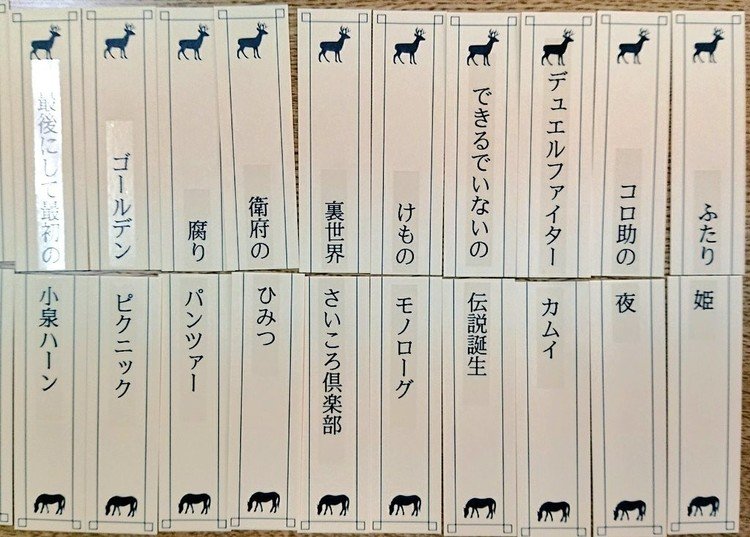 ふたり
姫
コロ助の
夜
デュエルファイター
カムイ
できるでいないの
伝説誕生
けもの
モノローグ
裏世界
さいころ倶楽部
衛府の
ひみつ
腐り
パンツァー
ゴールデン
ピクニック
最後にして最初の
小泉ハーン